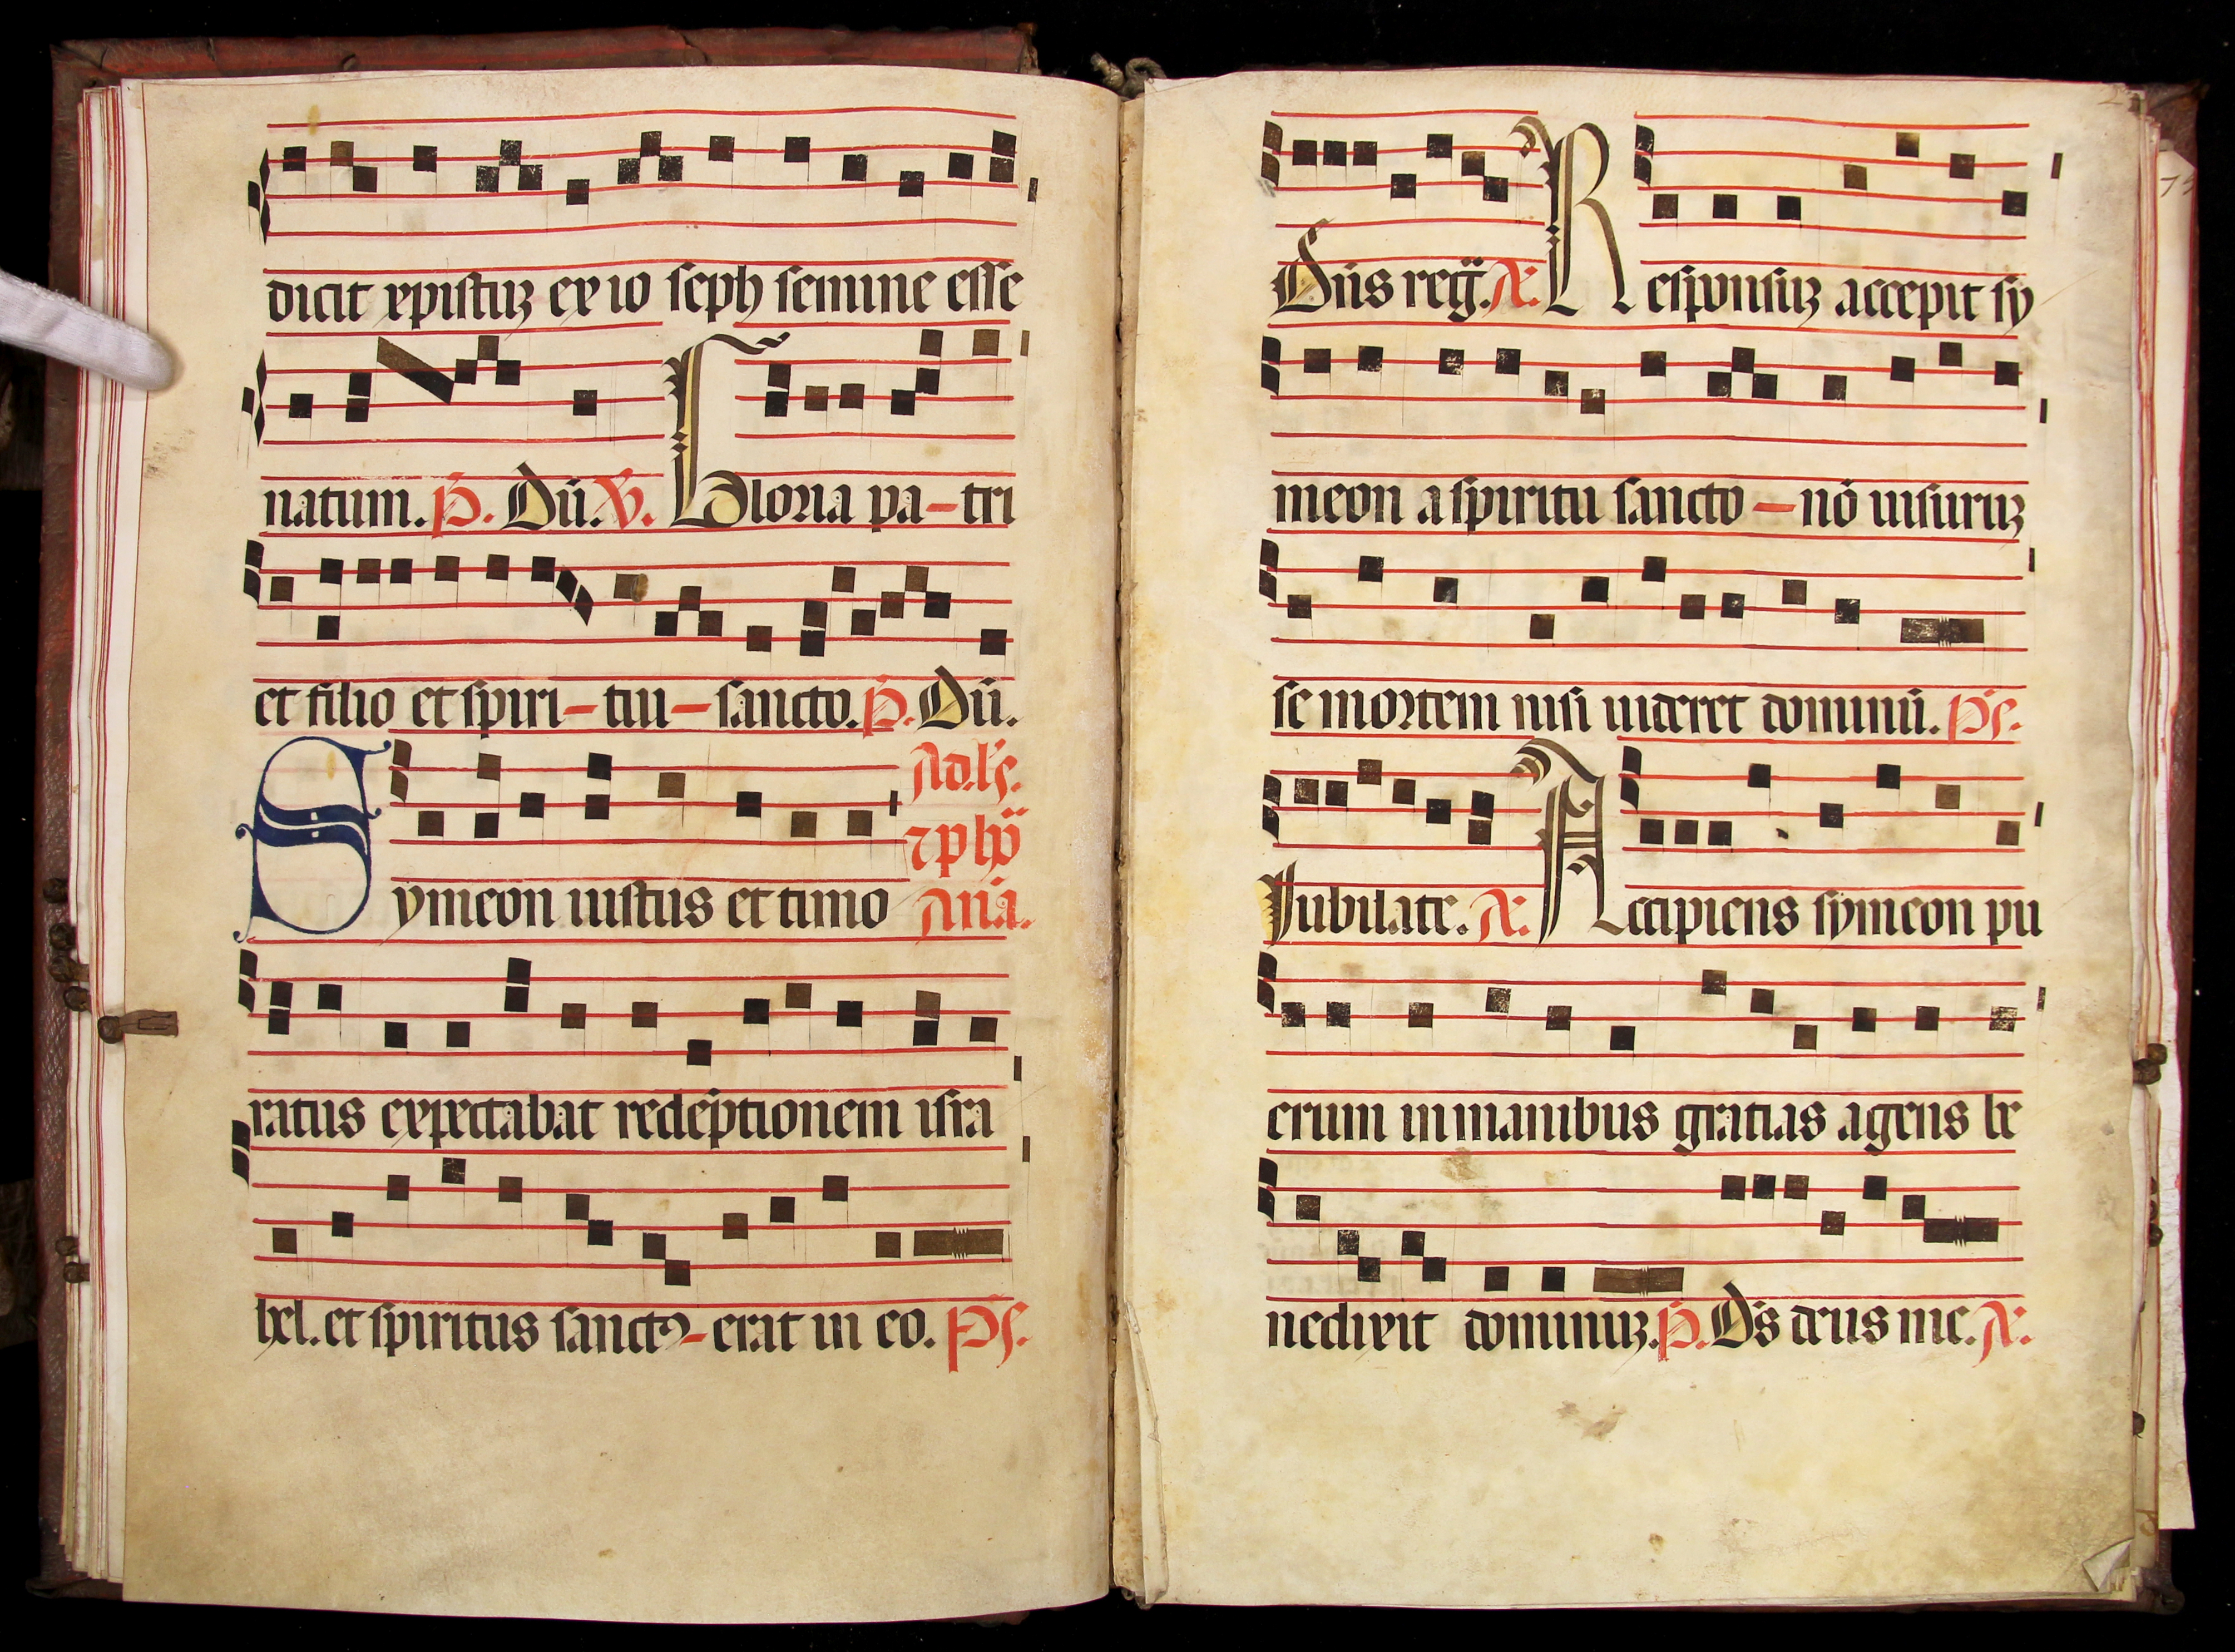 dicit xpistuz ex io seph semine esse
natum. P. Dū. V. Gloria pa-tri
et filio et spiri-tui-sancto. P. Dū.
Symeon iustus et timo
Ad. ls.
ana.
ratus expectabat redēptionem isra
hel. et spiritus sanctꝰ-erat in eo. Ps.
Dn̄s reg̃. A. Responsuz accepit sy
meon a spiritu sancto-nō uisuruz
se mortem nisi uideret dominū. Ps.
Jubilate. A. Accipiens symeon pu
erum in manibus gratias agens be
nedixit dominuz. P. Ds deus me. A.